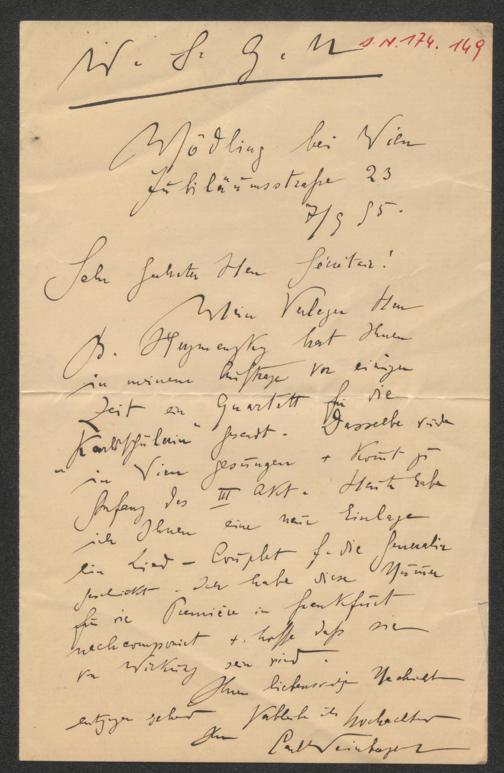 W. S. G. N
S. N. 174. 149
Mödling bei Wien
Jubiläumsstraße 23
7/9 95.
Sehr geehrter Herr Sécrétair!
Mein Verleger Herr
B. hat Ihnen
in meinem Auftrage vor einigen
Zeit ein Quartett für die
"Karlsschülerin" gesandt. Dasselbe
in Wien gesungen + kommt zu
Anfang des III Akt. Heute habe
ich Ihnen eine neue Einlage
ein Lied – Couplet f. die Generalin
geschickt. Ich habe diese Nummer
für die Première in Frankfurt
nachcomponirt + hoffe daß sie
von Wirkung sein wird.
Ihrer liebenswürdigen Nachricht
entgegen sehend hochachtend
Ihr Carl Weinberger